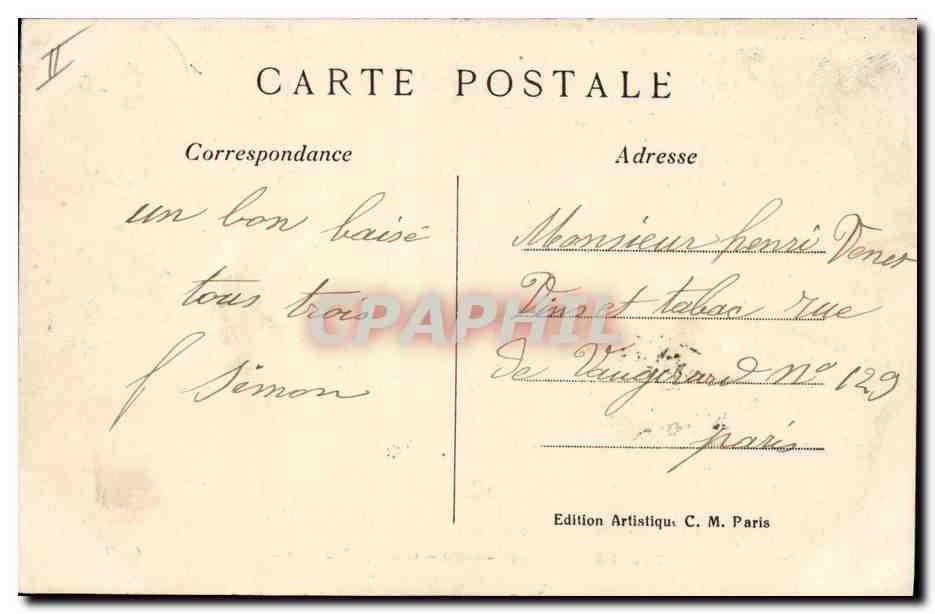 II
CARTE POSTALE
Correspondance
un bon baisé
tous trois
f Simon
Adresse
Monsieur henri Venet
Vins et tabac rue
de Vaugirard No 129
paris
Edition Artistique C. M. Paris
CPAPHIL